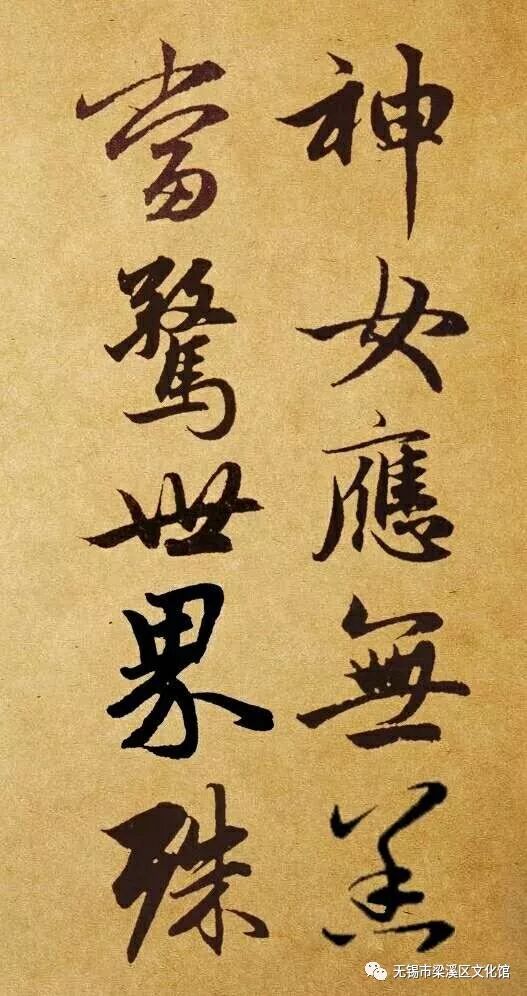 神女應無恙
當驚世界殊
无锡市梁溪区文化馆